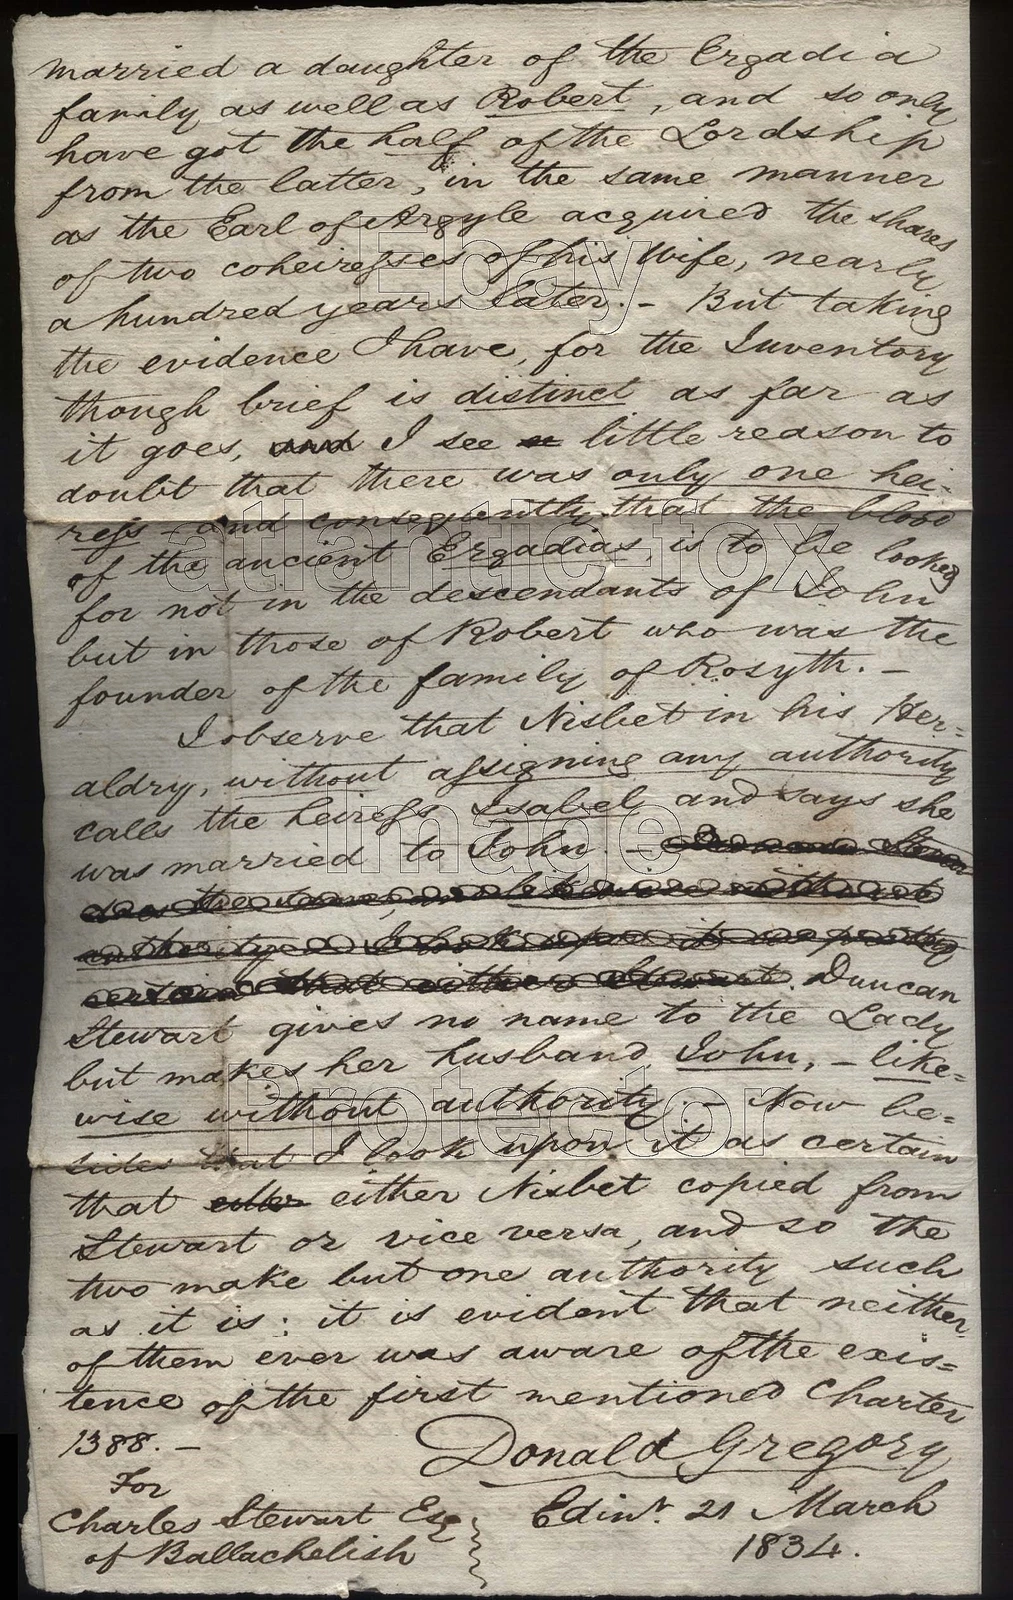 married a daughter of the Ergadia
family as well as Robert, and so only
have got the half of the Lordship
from the latter, in the same manner
as the Earl of Argyle acquired the shares
of two coheiresses of his Wife, nearly
a hundred years later. – But taking
the evidence I have, for the Inventory
though brief is distinct as far as
it goes, and I see little reason to
doubt that there was only one hei-
ress and consequently that the blood
of the ancient Ergadias is to be looked
for not in the descendants of John
but in those of Robert who was the
founder of the family of Rosyth. –
I observe that Nisbet in his Her=
aldry, without assigning any authority
calls the heiress Isabel and says she
was married to John. –
Duncan
Stewart gives no name to the Lady
but makes her husband John, – like=
wise without authority. – Now be-
sides that I look upon it as certain
that either Nisbet copied from
Stewart or vice versa, and so the
two make but one authority such
as it is: it is evident that neither
of them ever was aware of the exis=
tence of the first mentioned Charter
1388. –
Donald Gregory
For
Charles Stewart Esq
of Ballachelish
Edinr. 21 March
1834.
Ebay
atlantic-fox
Image
Protector